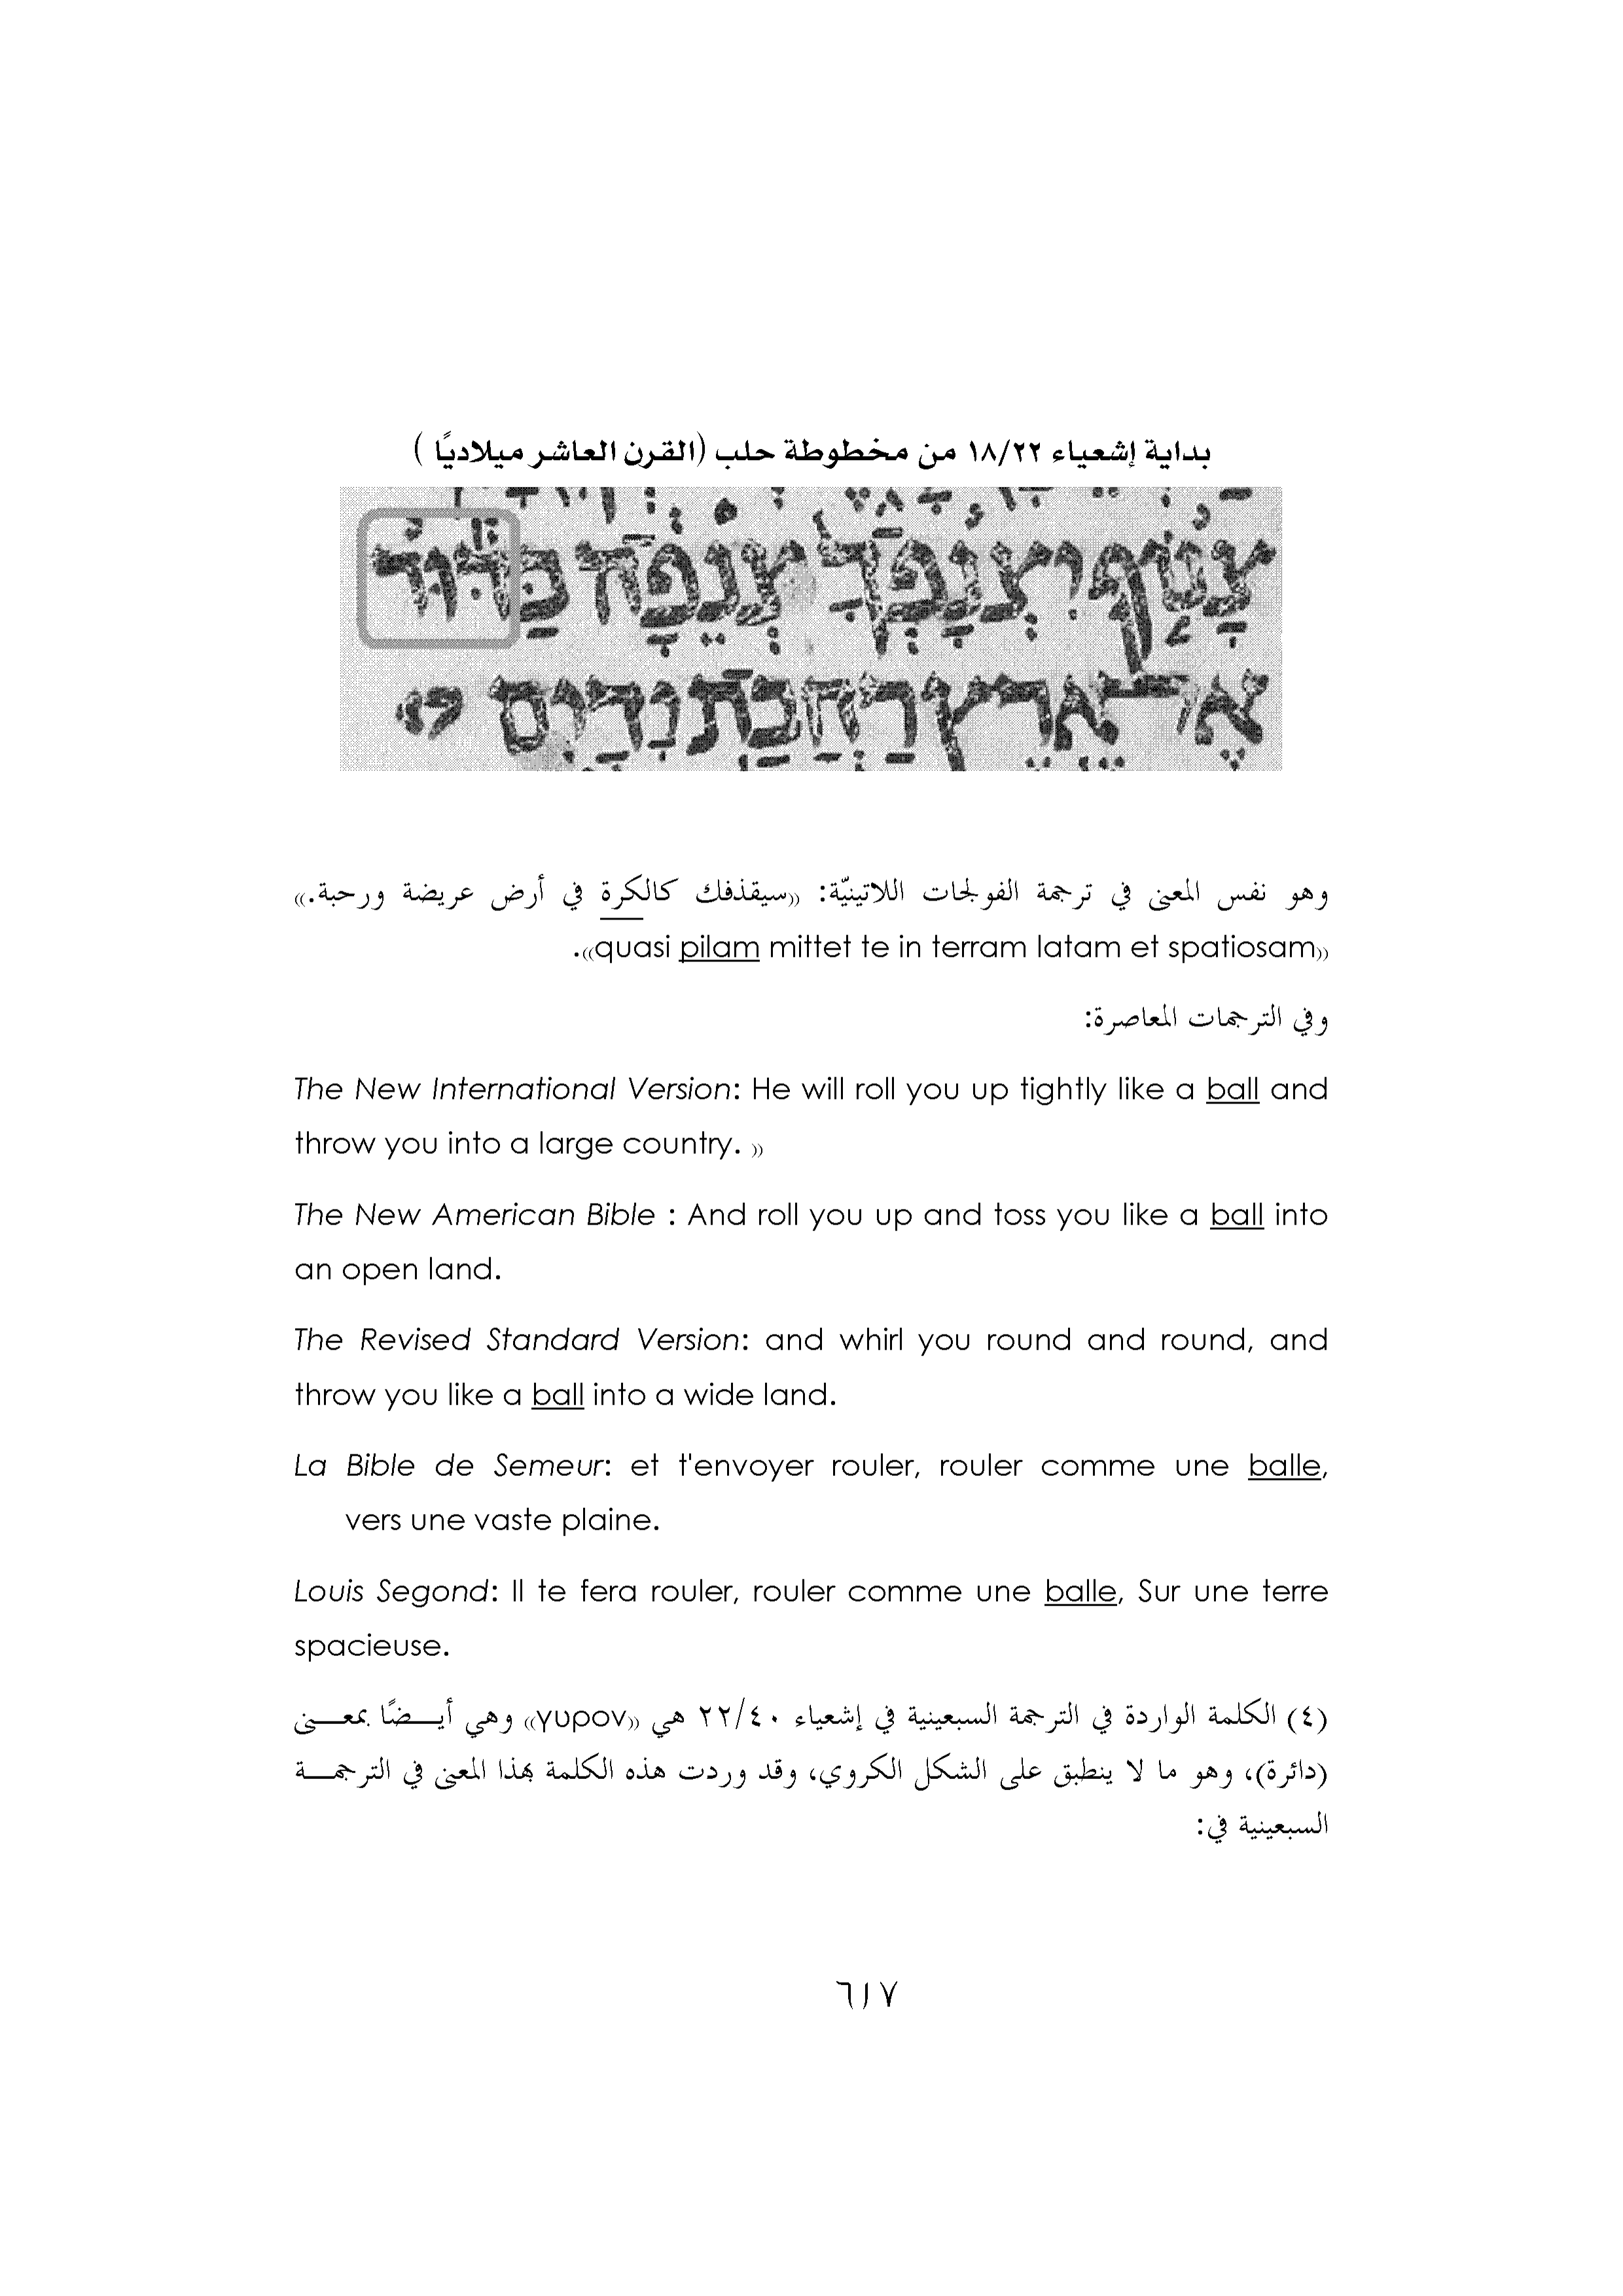 بداية إشعياء ١٨/٢٢ من مخطوطة حلب (القرن العاشر ميلاديًا )
צָנ֤וֹף יִצְנׇפְךָ֙ צְנֵפָ֔ה כַּדּ֕וּר
אֶל־אֶ֖רֶץ רַחֲבַ֣ת יָדָ֑יִם
وهو نفس المعنى في ترجمة الفولجات اللاتينيّة: «سيقذفك كالكرة في أرض عريضة ورحبة.»
«quasi pilam mittet te in terram latam et spatiosam».
وفي الترجمات المعاصرة:
The New International Version: He will roll you up tightly like a ball and
throw you into a large country. »
The New American Bible : And roll you up and toss you like a ball into
an open land.
The Revised Standard Version: and whirl you round and round, and
throw you like a ball into a wide land.
La Bible de Semeur: et t'envoyer rouler, rouler comme une balle,
vers une vaste plaine.
Louis Segond: Il te fera rouler, rouler comme une balle, Sur une terre
spacieuse.
(٤) الكلمة الواردة في الترجمة السبعينية في إشعياء ٢٢/٤٠ هي «γυρον» وهي أيـــضًا بمعـــنى
(دائرة)، وهو ما لا ينطبق على الشكل الكروي، وقد وردت هذه الكلمة بهذا المعنى في الترجمـــة
السبعينية في:
٦١٧